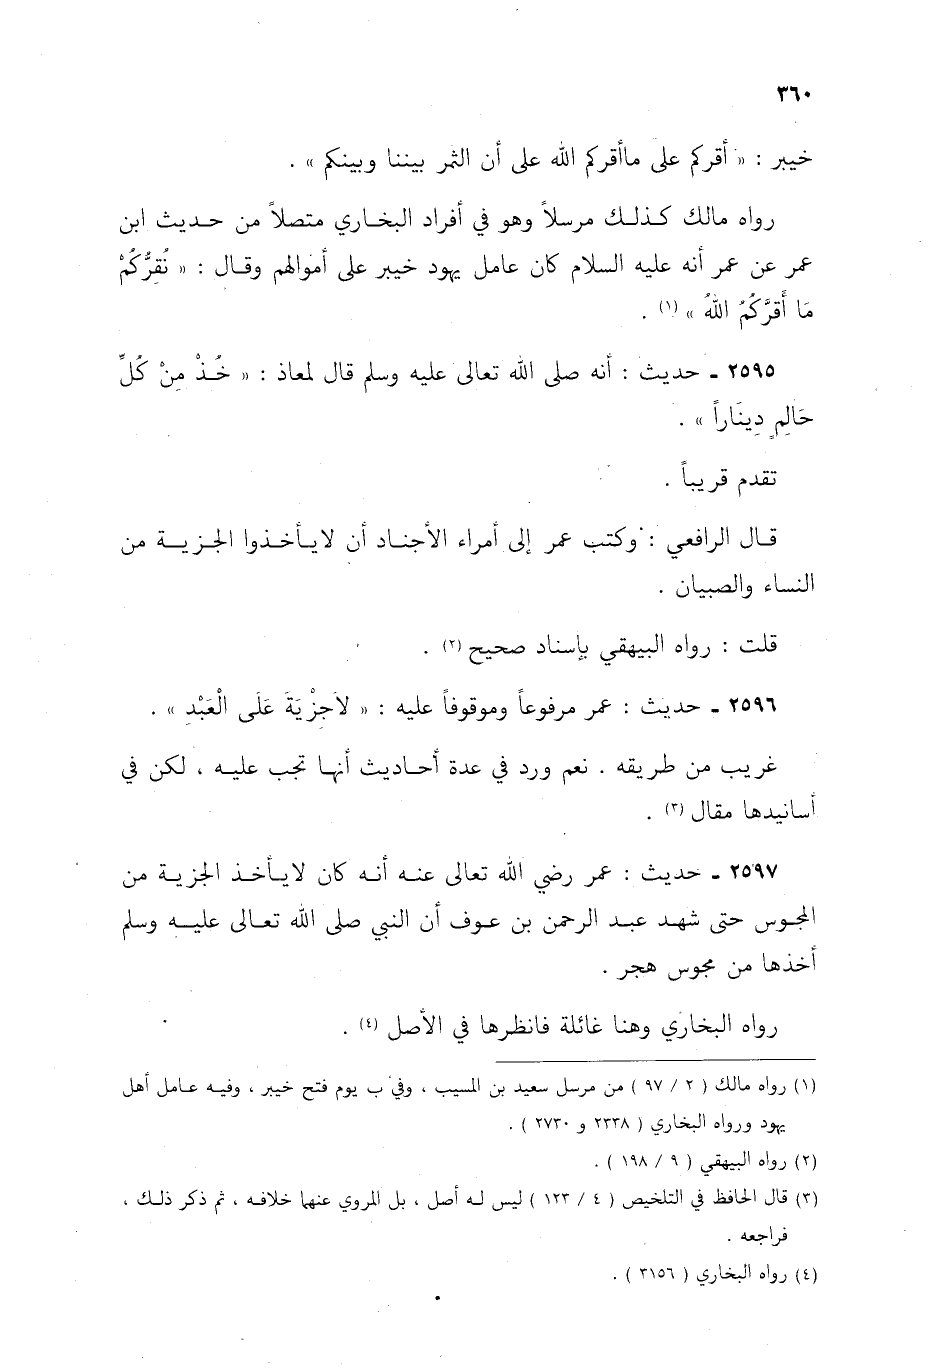 ٣٦٠
خيبر : « أقركم على ماأقركم الله على أن الثمر بيننا وبينكم » .
رواه مالك كذلك مرسلاً وهو في أفراد البخاري متصلاً من حديث ابن
عمر عن عمر أنه عليه السلام كان عامل يهود خيبر على أموالهم وقال : « نُقِرُّكُمْ
مَا أَقَرَّكُمُ اللهُ » (١) .
٢٥٩٥ ـ حديث : أنه صلى الله تعالى عليه وسلم قال لمعاذ : « خُذْ مِنْ كُلِّ
حَالِمٍ دِينَاراً » .
تقدم قريباً .
قال الرافعي : وكتب عمر إلى أمراء الأجناد أن لايأخذوا الجزية من
النساء والصبيان .
قلت : رواه البيهقي بإسناد صحيح (٢) .
٢٥٩٦ ـ حديث : عمر مرفوعاً وموقوفاً عليه : « لاَجِزْيَةَ عَلَى الْعَبْدِ » .
غريب من طريقه . نعم ورد في عدة أحاديث أنها تجب عليه ، لكن في
أسانيدها مقال (٣) .
٢٥٩٧ ـ حديث : عمر رضي الله تعالى عنه أنه كان لايأخذ الجزية من
المجوس حتى شهد عبد الرحمن بن عوف أن النبي صلى الله تعالى عليه وسلم
أخذها من مجوس هجر .
رواه البخاري وهنا غائلة فانظرها في الأصل (٤) .
(١) رواه مالك ( ٢ / ٩٧ ) من مرسل سعيد بن المسيب ، وفي ب يوم فتح خيبر ، وفيه عامل أهل
يهود ورواه البخاري ( ٢٣٣٨ و ٢٧٣٠ ) .
(٢) رواه البيهقي ( ٩ / ١٩٨ ) .
(٣) قال الحافظ في التلخيص ( ٤ / ١٢٣ ) ليس له أصل ، بل المروي عنها خلافه ، ثم ذكر ذلك ،
فراجعه .
(٤) رواه البخاري ( ٣١٥٦ ) .